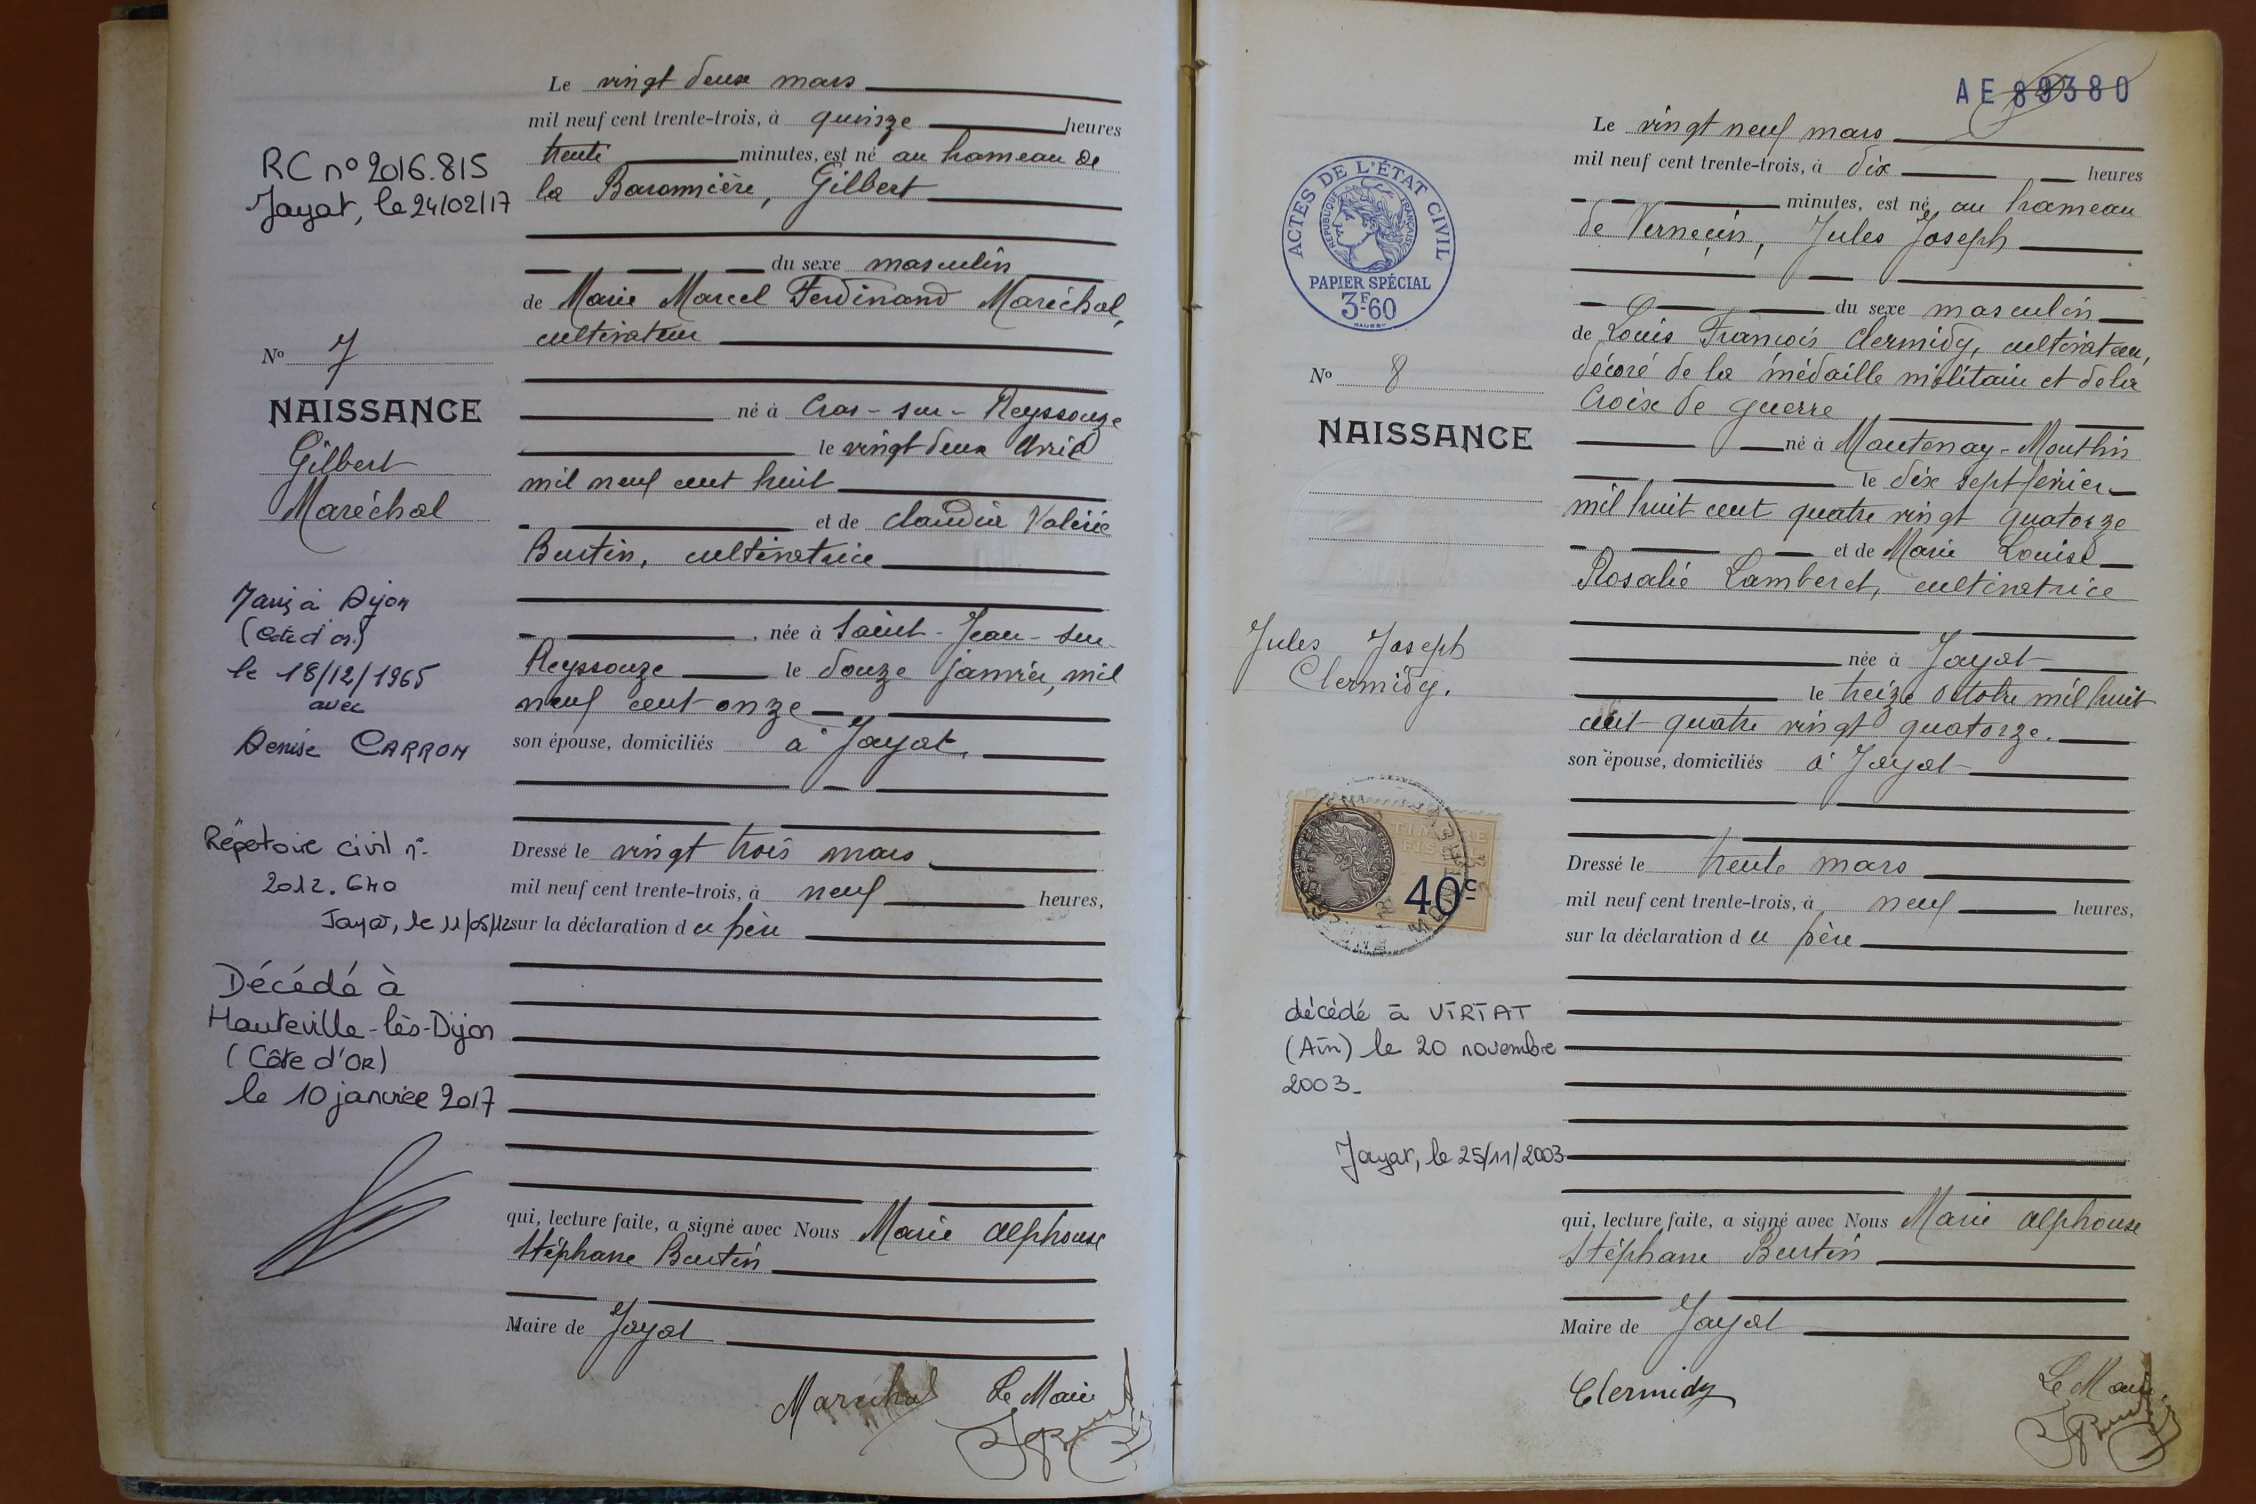 Le vingt deux mars
mil neuf cent trente-trois, à quinze heures
trente minutes, est né au hameau de
la Baronnière, Gilbert
du sexe masculin
de Marie Marcel Ferdinand Maréchal,
cultivateur
né à Cras-sur-Reyssouze
le vingt deux Avril
mil neuf cent huit
et de Claudia Valérie
Burtin, cultivatrice
, née à Saint-Jean-sur-
Reyssouze le douze janvier, mil
neuf cent onze
son épouse, domiciliés à Jayat,
Dressé le vingt trois mars
mil neuf cent trente-trois, à neuf heures,
sur la déclaration du père
qui, lecture faite, a signé avec Nous Marie Alphonse
Stéphane Burtin
Maire de Jayat
Maréchal Le Maire
RC n° 2016.815
Jayat, le 24/02/17
N° 7
NAISSANCE
Gilbert
Maréchal
Marié à Dijon
(Côte d'or)
le 18/12/1965
avec
Denise CARRON
Répertoire civil n°
2012.640
Jayat, le 11/05/12
Décédé à
Hauteville-lès-Dijon
(Côte d'OR)
le 10 janvier 2017
AE 89380
Le vingt neuf mars
mil neuf cent trente-trois, à dix heures
minutes, est né au hameau
de Vernecin, Jules Joseph
du sexe masculin
de Louis François Clermidy, cultivateur,
décoré de la médaille militaire et de la
Croix de guerre
né à Mantenay-Montlin
le dix sept février
mil huit cent quatre vingt quatorze
et de Marie Louise
Rosalie Lamberet, cultivatrice
née à Jayat
le treize octobre mil huit
cent quatre vingt quatorze.
son épouse, domiciliés à Jayat
Dressé le trente mars
mil neuf cent trente-trois, à neuf heures,
sur la déclaration du père
qui, lecture faite, a signé avec Nous Marie Alphonse
Stéphane Burtin
Maire de Jayat
Clermidy Le Maire
ACTES DE L'ÉTAT CIVIL
RÉPUBLIQUE FRANÇAISE
PAPIER SPÉCIAL
3F60
N° 8
NAISSANCE
Jules Joseph
Clermidy.
TIMBRE
FISCAL
40c
décédé à VIRIAT
(Ain) le 20 novembre
2003.
Jayat, le 25/11/2003